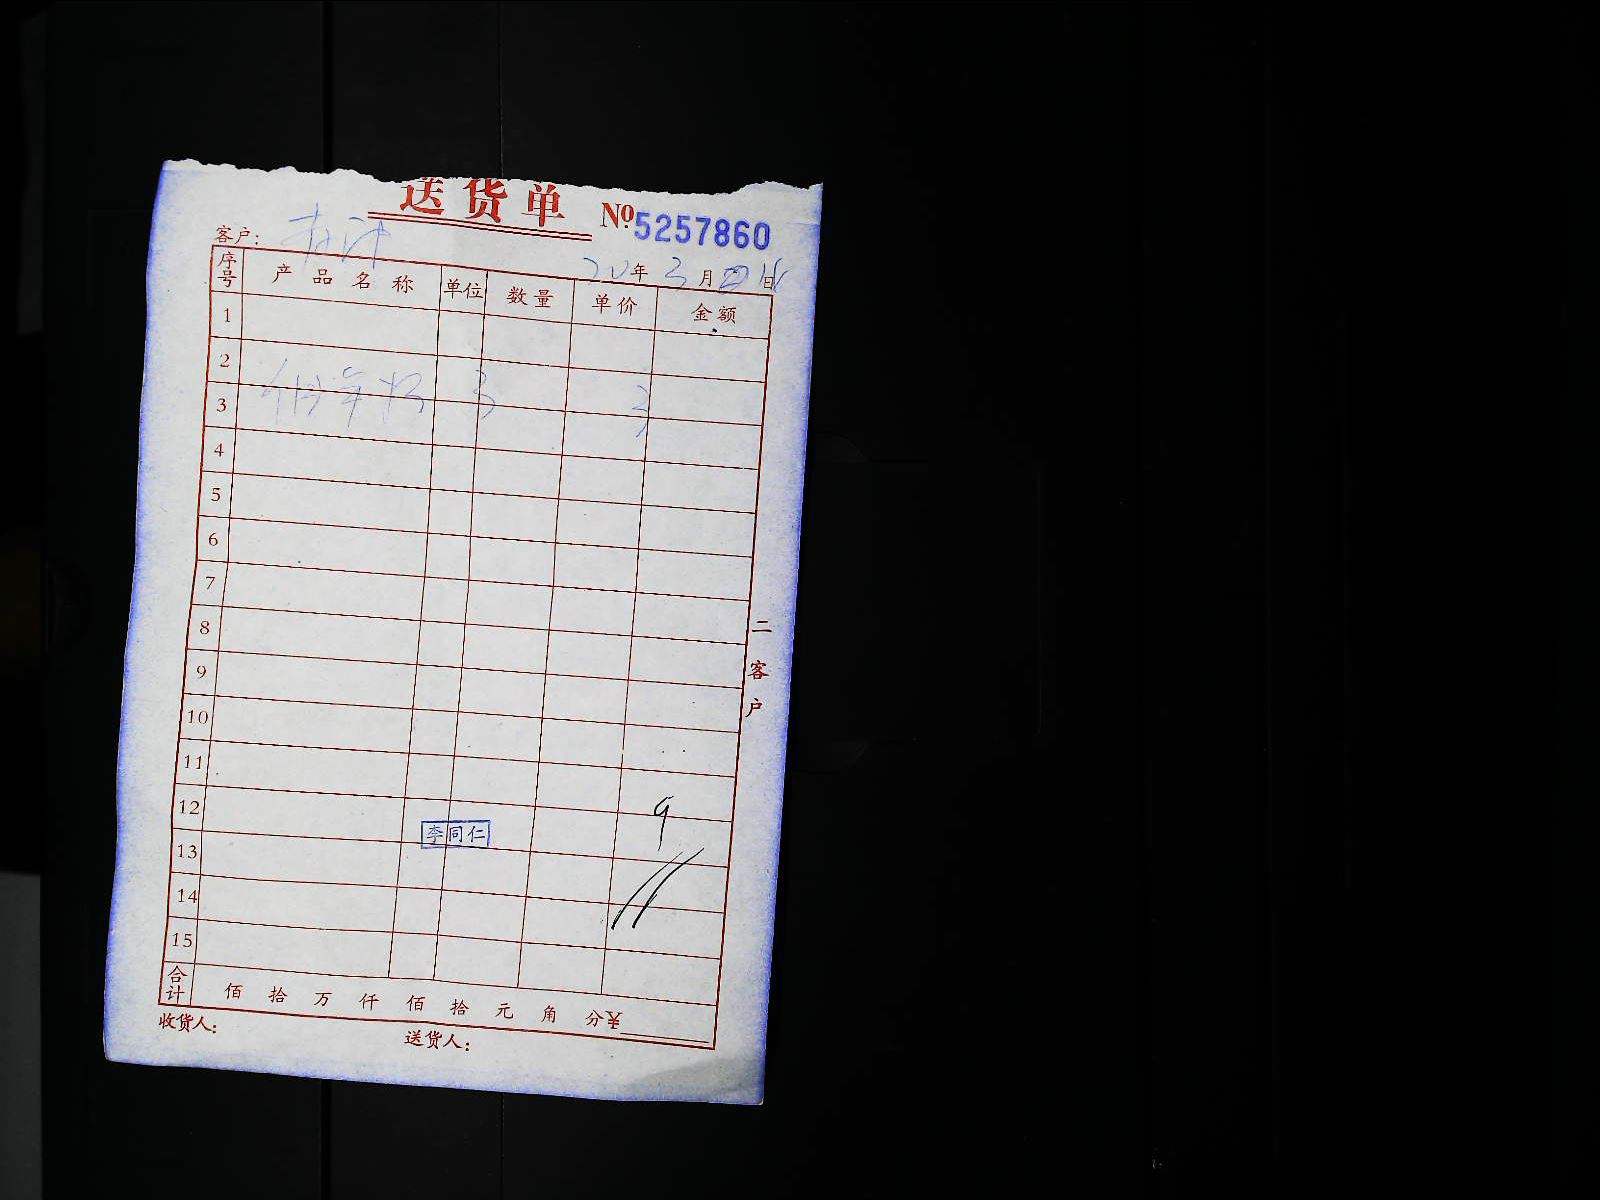 送货单 №5257860
客户:
20年3月 日
序号 产品名称 单位 数量 单价 金额
1
2
3 3 3
4
5
6
7
8
9
10
11
12 9
13
14
15
李同仁
合计 佰 拾 万 仟 佰 拾 元 角 分¥
收货人: 送货人:
二客户